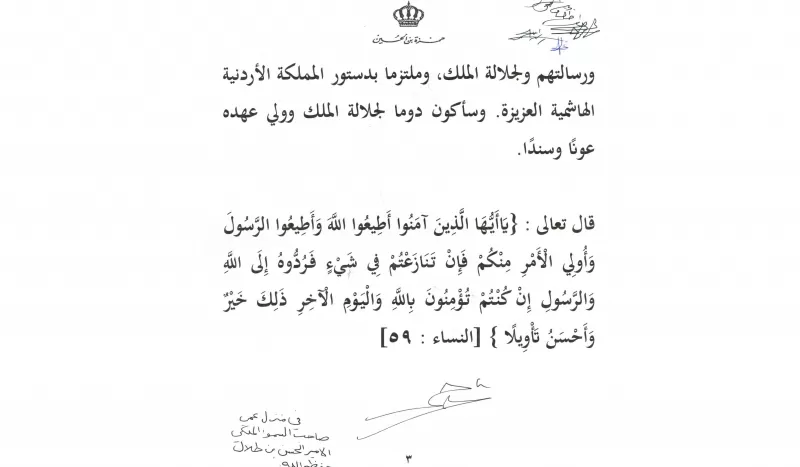 حمزة بن الحسين
ورسالتهم ولجلالة الملك، وملتزما بدستور المملكة الأردنية
الهاشمية العزيزة. وسأكون دوما لجلالة الملك وولي عهده
عونًا وسندًا.
قال تعالى : {يَاأَيُّهَا الَّذِينَ آمَنُوا أَطِيعُوا اللَّهَ وَأَطِيعُوا الرَّسُولَ
وَأُولِي الْأَمْرِ مِنْكُمْ فَإِنْ تَنَازَعْتُمْ فِي شَيْءٍ فَرُدُّوهُ إِلَى اللَّهِ
وَالرَّسُولِ إِنْ كُنْتُمْ تُؤْمِنُونَ بِاللَّهِ وَالْيَوْمِ الْآخِرِ ذَلِكَ خَيْرٌ
وَأَحْسَنُ تَأْوِيلًا } [النساء : ٥٩]
في منزل عمي
صاحب السمو الملكي
الامير الحسن بن طلال
حفظه الله
٣